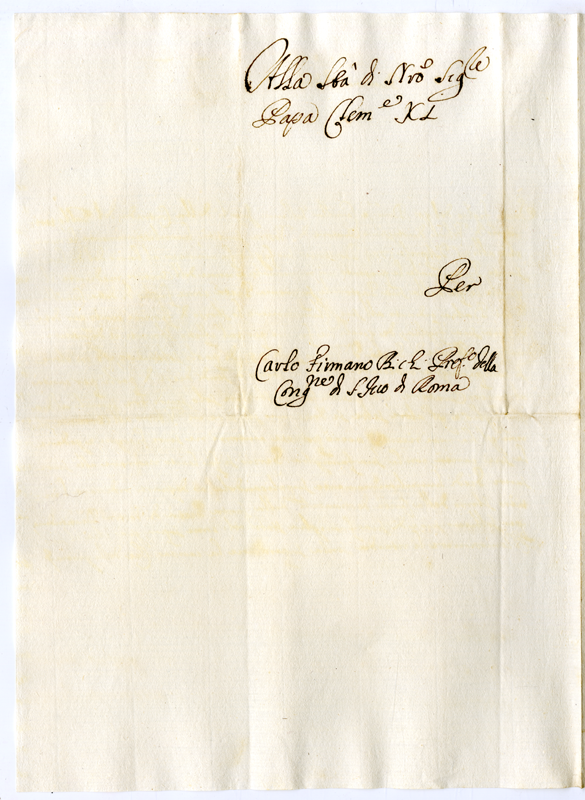 Alla Stà di Nro Sigre
Papa Cleme XI
Per
Carlo Firmano Bichi Profo della
Congne di S. Ivo di Roma